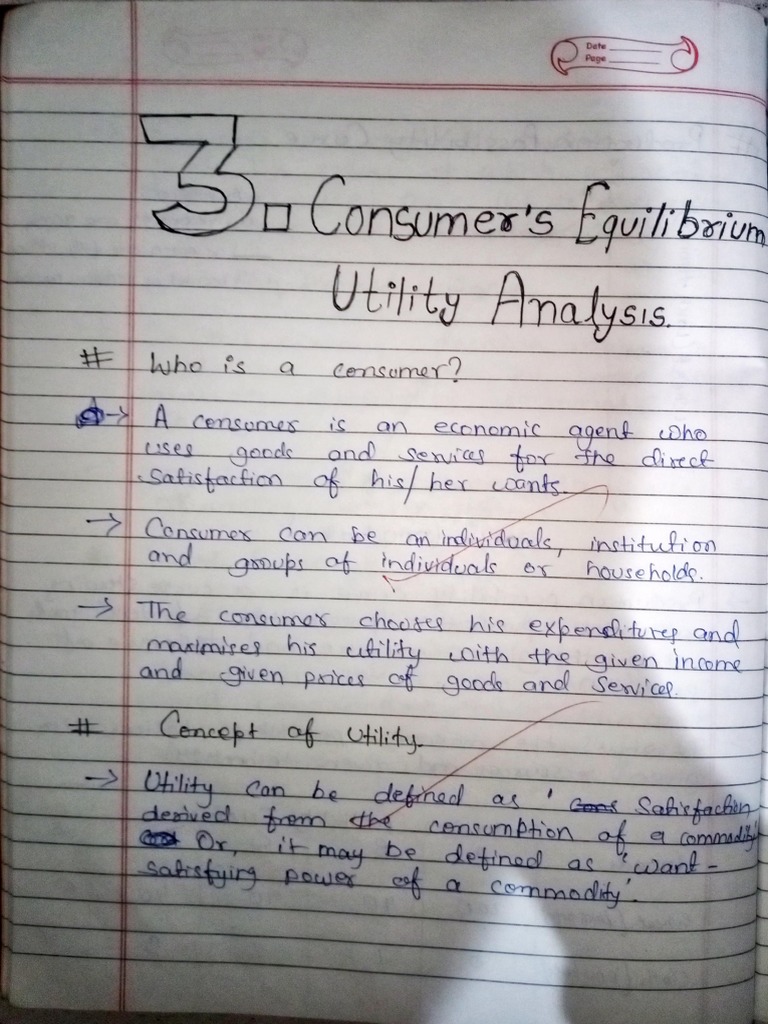 Date
Page
3. Consumer's Equilibrium
Utility Analysis.
# Who is a consumer?
→ A consumer is an economic agent who
uses goods and services for the direct
satisfaction of his/her wants.
→ Consumer can be an individuals, institution
and groups of individuals or households.
→ The consumer chooses his expenditures and
maximises his utility with the given income
and given prices of goods and services.
# Concept of Utility.
→ Utility can be defined as ' Satisfaction
derived from the consumption of a commodity'
Or, it may be defined as 'want-
satisfying power of a commodity'.